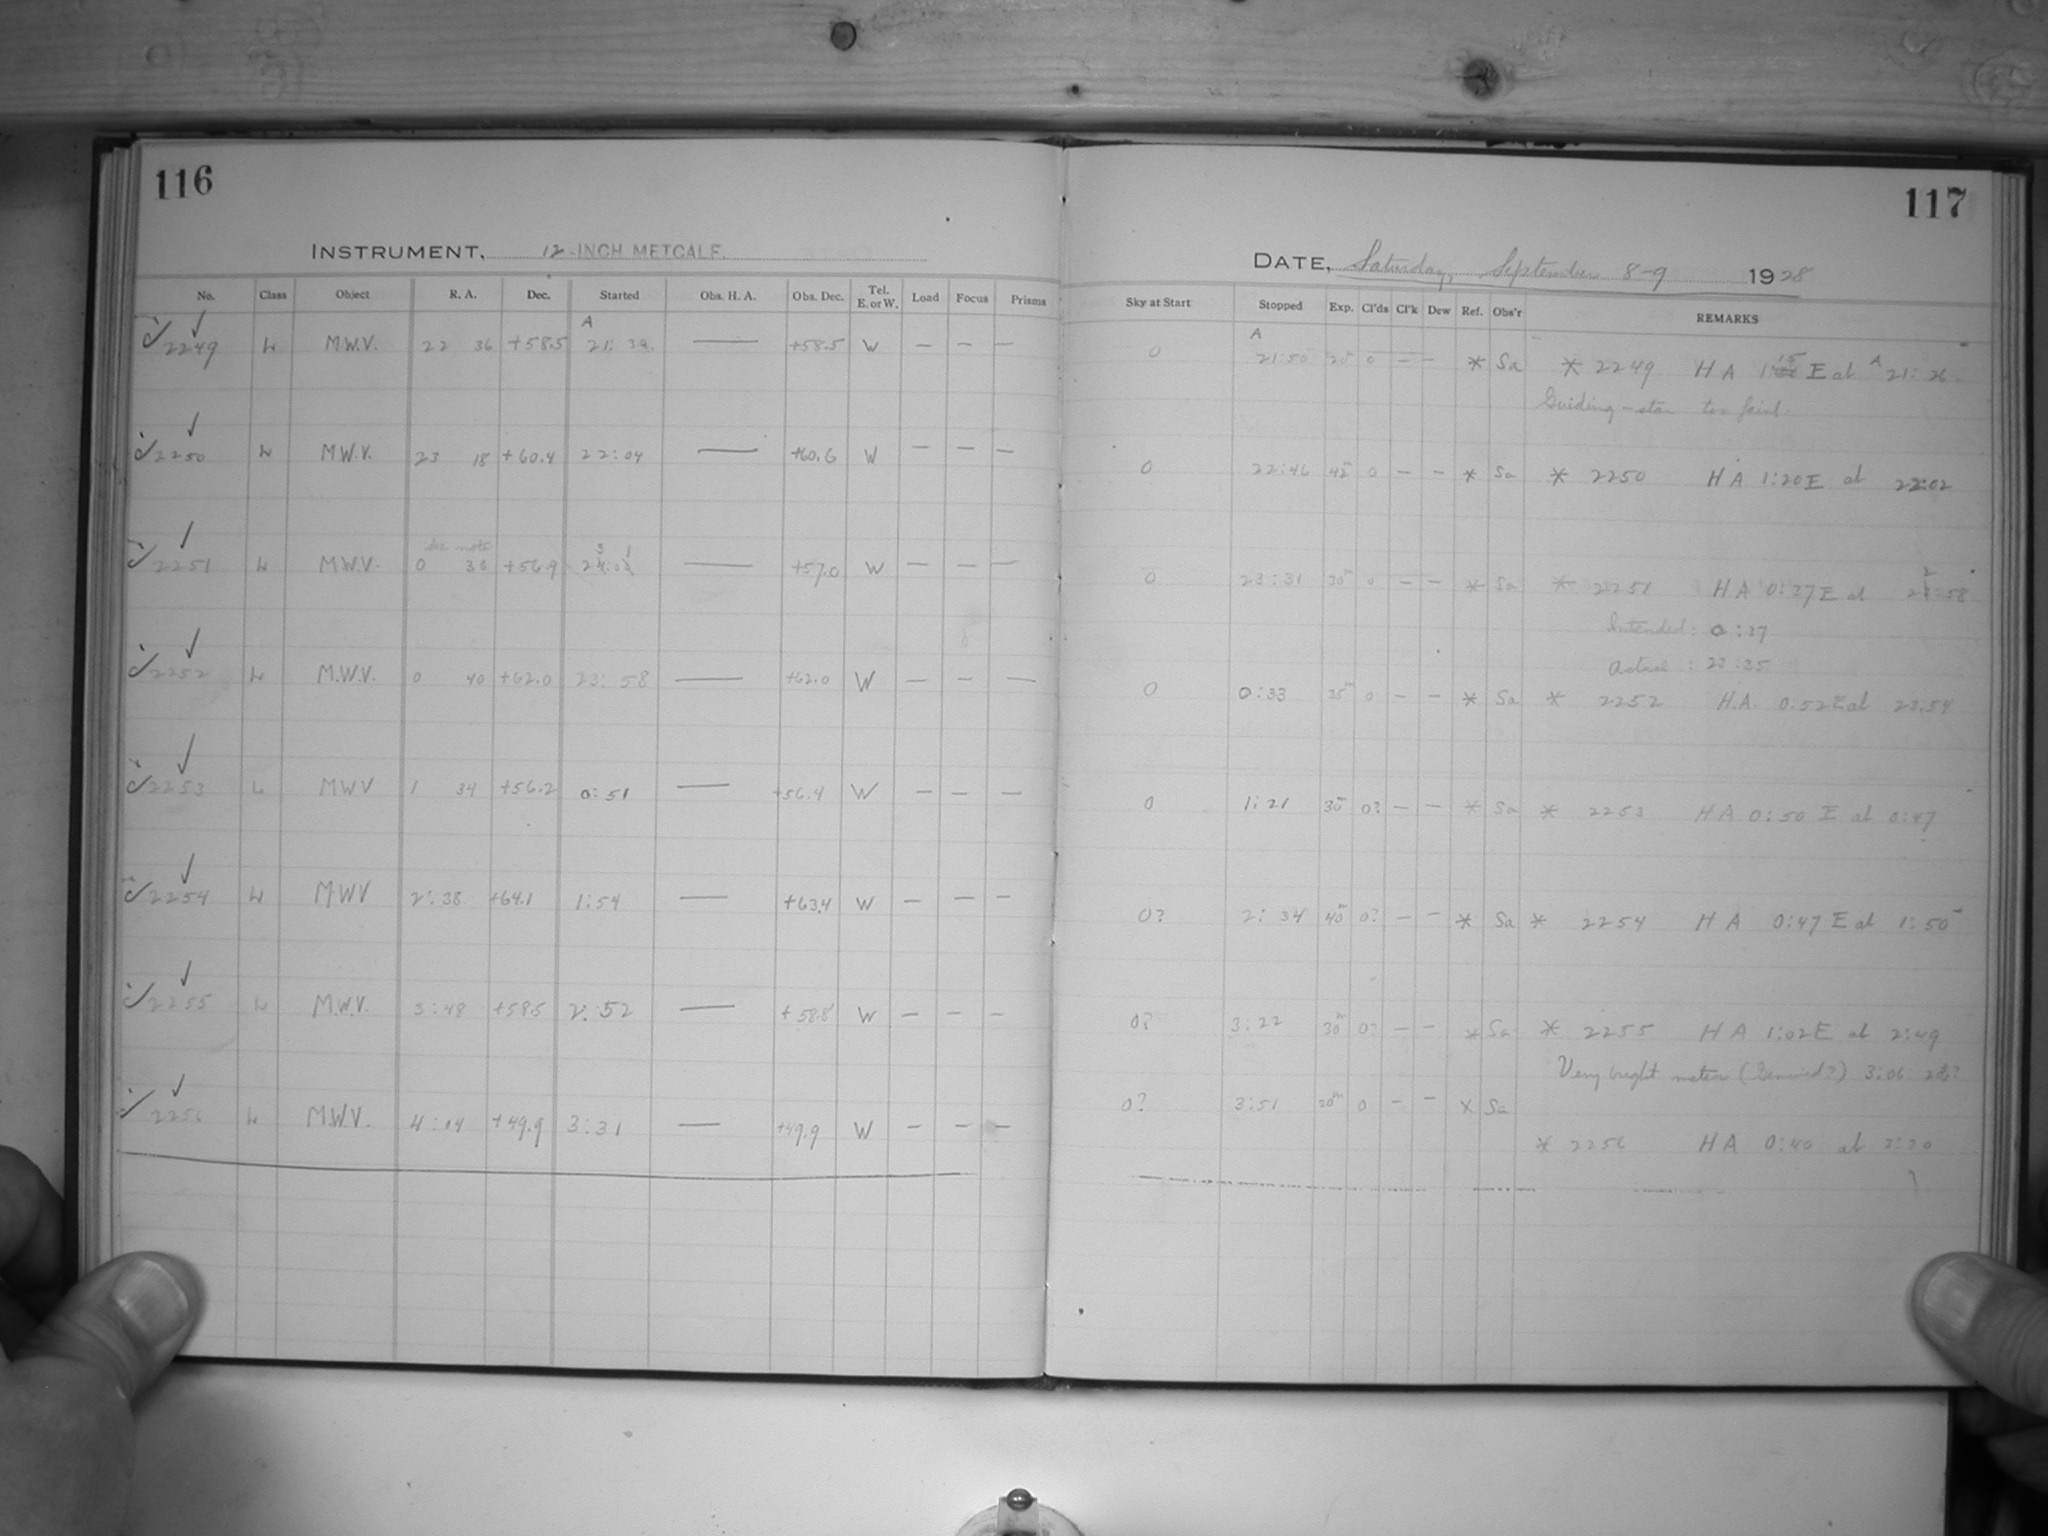 116
INSTRUMENT, 12-INCH METCALF.
No. Class Object R. A. Dec. Started Obs. H. A. Obs. Dec. Tel. E. or W. Load Focus Prisms
A
2249 L M.W.V. 22 36 +58.5 21: — +58.5 W — — —
2250 L M.W.V. 23 18 +60.4 22:04 — +60.6 W — — —
see note 3 1
2251 L M.W.V. 0 36 +56.9 — +57.0 W — — —
2252 L M.W.V. 0 40 +62.0 23:58 — +62.0 W — — —
2253 L MWV 1 34 +56.2 0:51 — +56.4 W — — —
2254 L MWV 2:38 +64.1 1:54 — +63.4 W — — —
2255 L M.W.V. 3:48 +58.5 2:52 — +58.8 W — — —
2256 L M.W.V. 4:14 +49.9 3:31 — +49.9 W — — —
117
DATE, Saturday, September 8-9 1928
Sky at Start Stopped Exp. Cl'ds Cl'k Dew Ref. Obs'r REMARKS
A
0 21:50 0 — — * Sa * 2249 HA 1:15 E at A 21:26
Guiding-star too faint.
0 22:46 42m 0 — — * Sa * 2250 HA 1:20 E at 22:02
0 23:31 30m 0 — — * Sa * 2251 HA 0:37 E at 22:58
Intended: 0:37
Actual: 23:35
0 0:33 35m 0 — — * Sa * 2252 H.A. 0:52 E at 23:54
0 1:21 30m 0? — — * Sa * 2253 HA 0:50 E at 0:47
0? 2:34 40m 0? — — * Sa * 2254 HA 0:47 E at 1:50
0? 3:22 30m 0? — — * Sa * 2255 HA 1:02 E at 2:49
Very bright meteor 3:06
0? 3:51 20m 0 — — x Sa
* 2256 HA 0:40 at 3:30